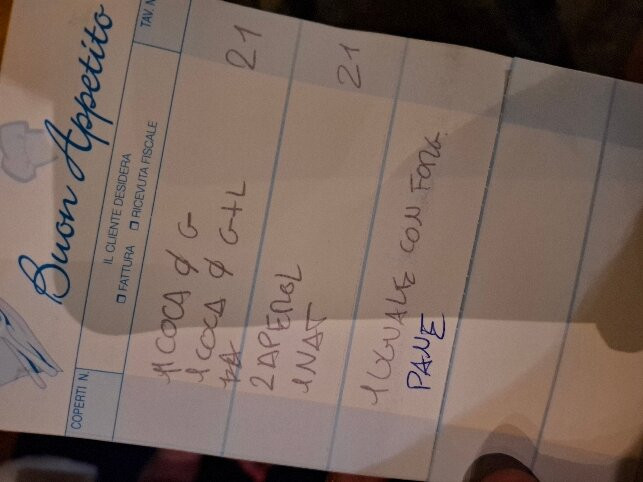 Buon Appetito
COPERTI N.
TAV. N
IL CLIENTE DESIDERA
□ FATTURA □ RICEVUTA FISCALE
1 COCA Ø G
1 COCA Ø G+L 21
2 APEROL
1 NAT 21
1 UGUALE CON FORM.
PANE